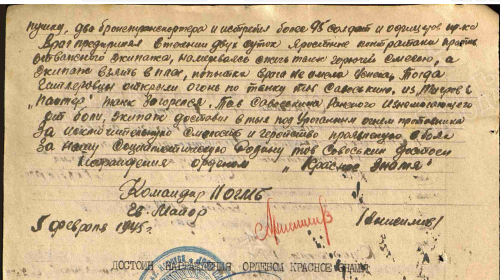 пушку, два бронетранспортера и истребил более 95 солдат и офицеров пр-ка
Враг предпринял в течении двух суток яростные контратаки против
отважного экипажа, намереваясь сжечь танк горючей смесью, а
экипаж взять в плен, попытка врага не имела успеха. Тогда
Гитлеровцы открыли огонь по танку тов Савоськина, из Тигров и
танк загорелся. Тов Савоськина раненого
от боли, экипаж доставил в тыл под ураганным огнем противника
За исключительную смелость и геройство в боях
За нашу Социалистическую Родину тов Савоськин достоин
награждения орденом „Красное Знамя"
Командир
Гв. Майор
/Анисимов/
5 февраля 1945 г.
ДОСТОИН НАГРАЖДЕНИЯ ОРДЕНОМ КРАСНОЕ ЗНАМЯ